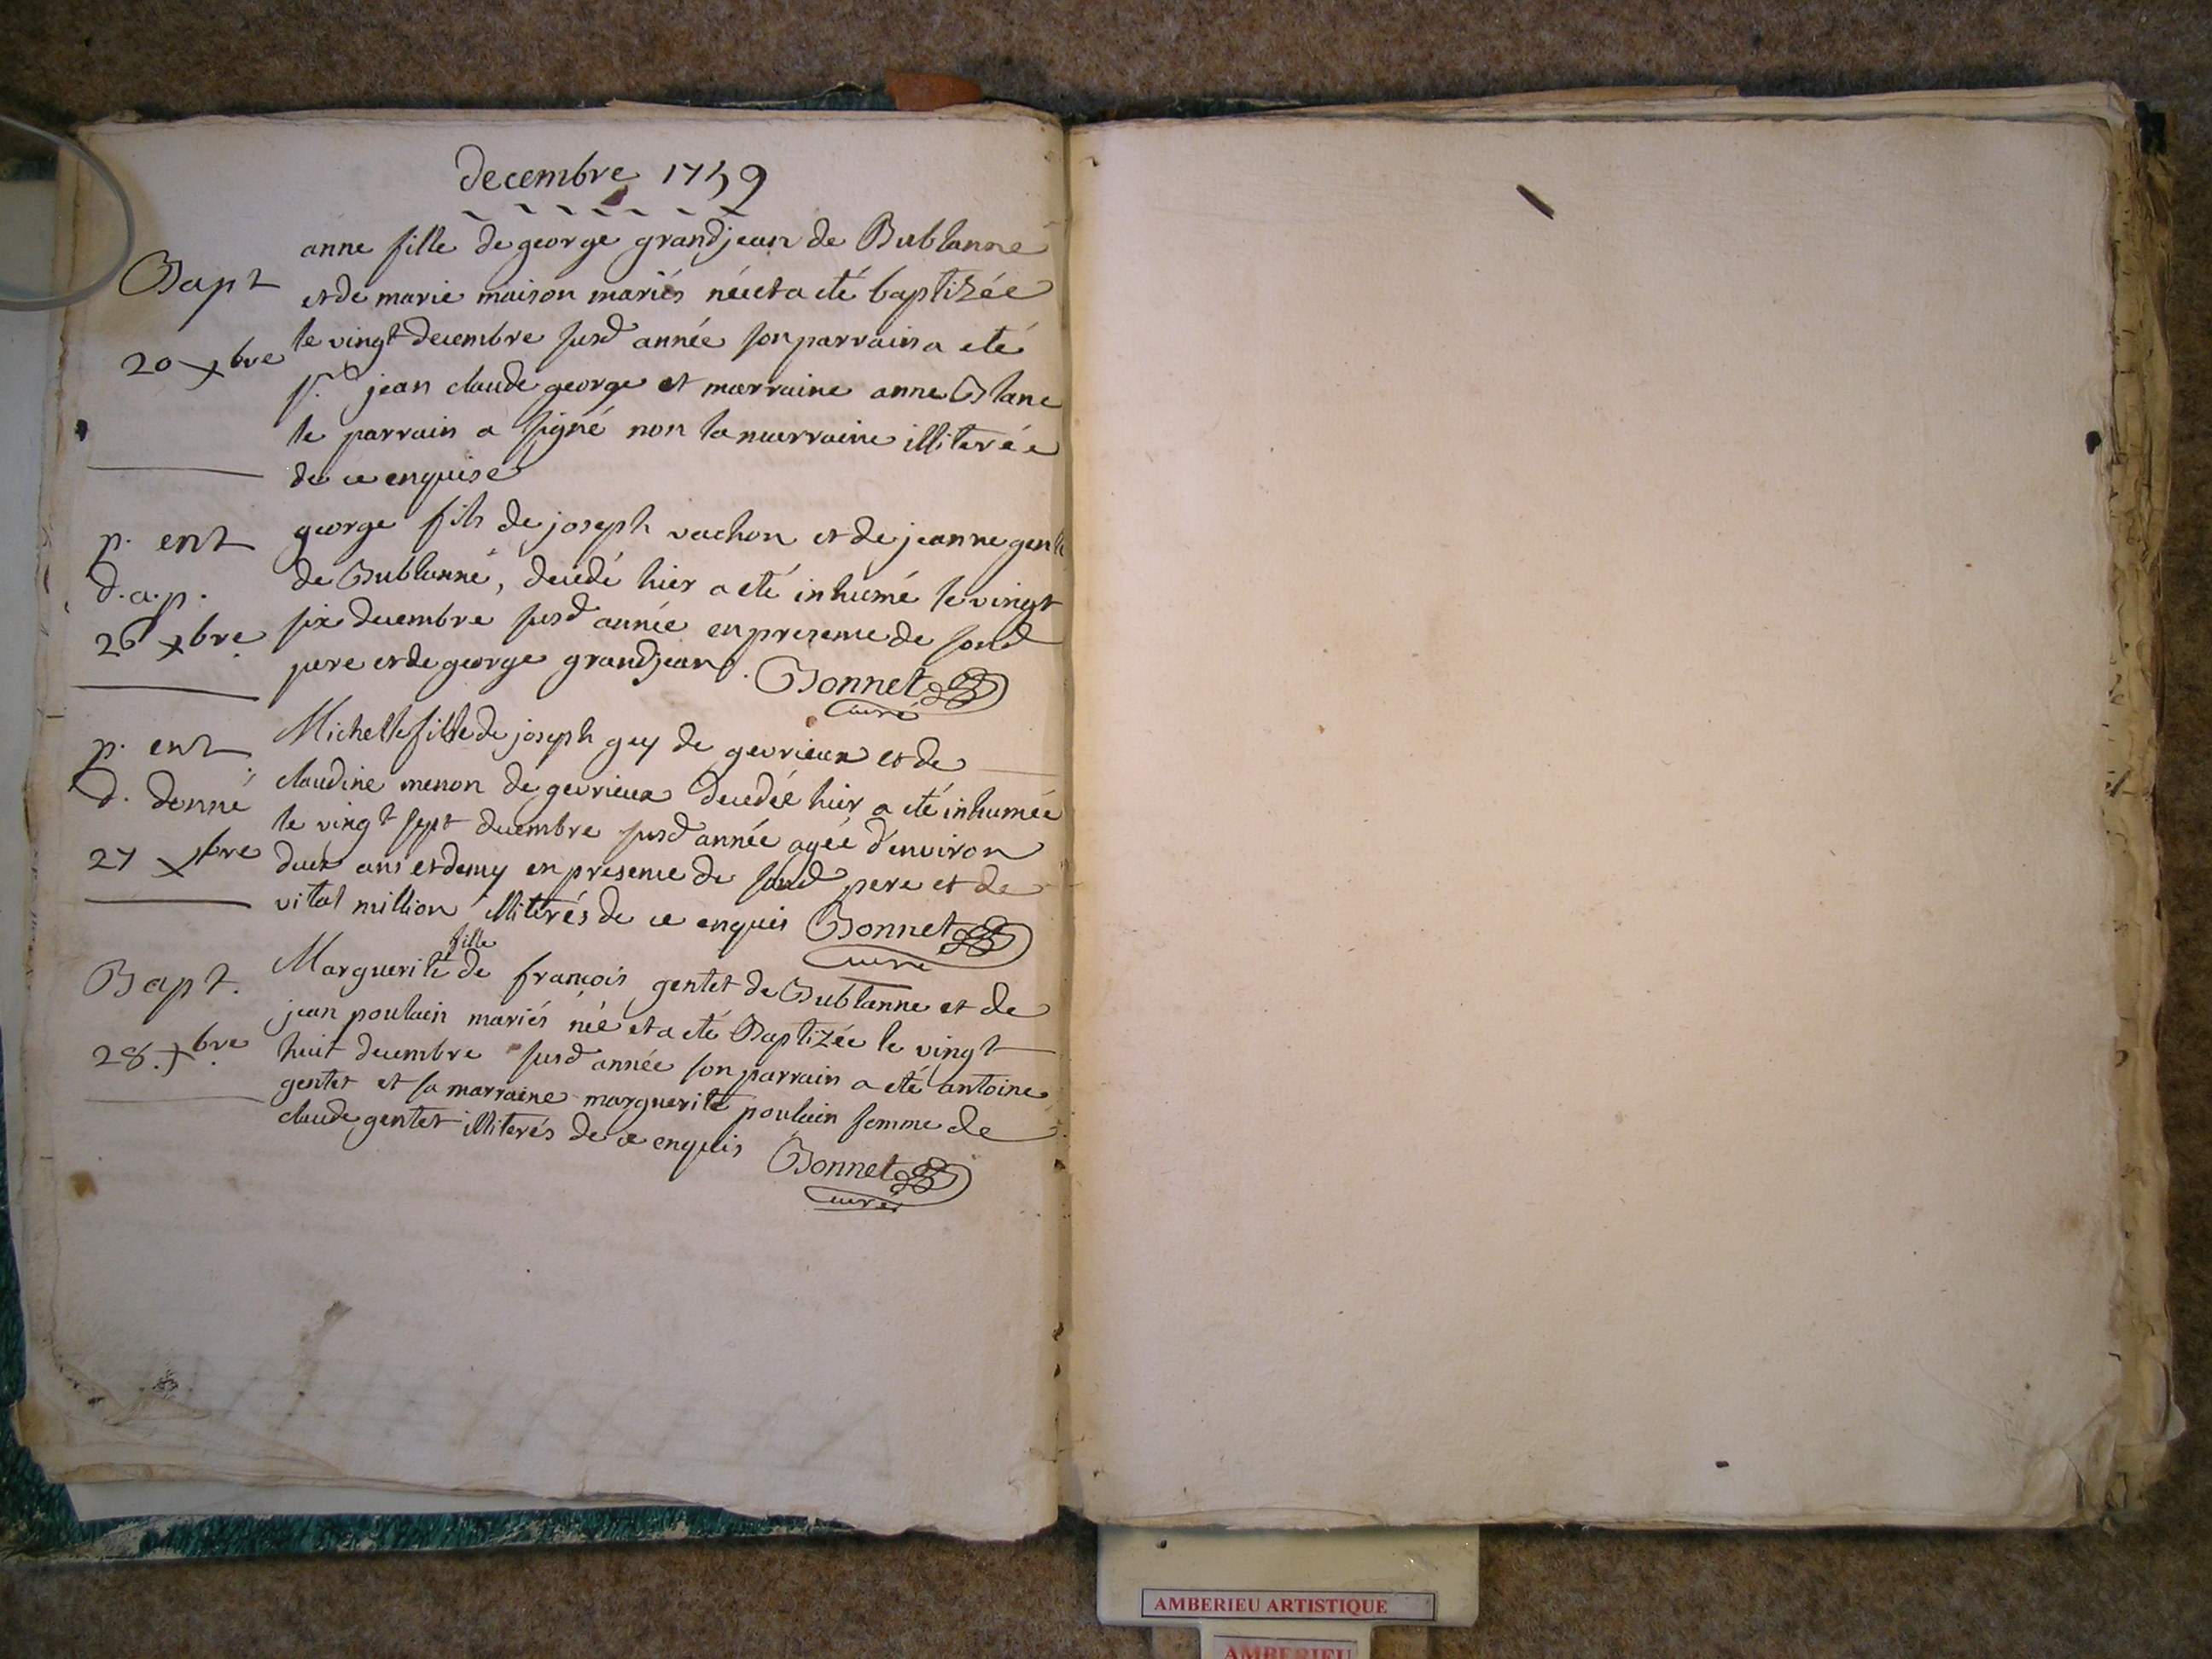 decembre 1759
Bapt
20 xbre
anne fille de george grandjean de Bublanne
et de marie maison mariés née et a eté baptizée
le vingt decembre susd année son parrain a eté
sr. jean claude george et marraine anne Blanc
le parrain a signé non la marraine illiterée
de ce enquise
p. ent
d.a.p.
26 xbre
george fils de joseph vachon et de jeanne
de Bublanne, decedé hier a eté inhumé le vingt
six decembre susd année en presence de sond
pere et de george grandjean. Bonnet
curé
p. ent
d. donné
27 xbre
Michelle fille de joseph guy de gevrieux et de
claudine menon de gevrieux decedée hier a eté inhumée
le vingt sept decembre susd année agée d'environ
deux ans et demy en presence de sond pere et de
vital million illiterés de ce enquis Bonnet
curé
Bapt.
28. xbre
fille
Marguerite de françois gentet de Bublanne et de
jean poulain mariés née et a eté Baptizée le vingt
huit decembre susd année son parrain a eté antoine
gentet et sa marraine marguerite poulain femme de
claude gentet illiterés de ce enquis Bonnet
curé
AMBERIEU ARTISTIQUE
AMBERIEU